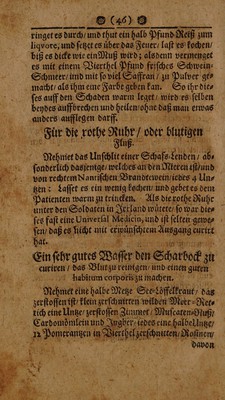 (46)
ringet es durch/ und thut ein halb Pfund Reiß zum
liqvore, und setzet es über das Feuer/ last es kochen/
biß es dicke wie ein Muß wird; alsdenn vermenget
es mit einem Vierthel Pfund frisches Schwein-
Schmeer/ und mit so viel Saffran/ zu Pulver ge-
macht/ als ihm eine Farbe geben kan. So ihr die-
ses auff den Schaden warm leget/ wird es selben
beydes auffbrechen und heilen/ ohne daß man etwas
anders aufflegen darff.
Für die rothe Ruhr/ oder blutigen
Fluß.
Nehmet das Unschlit einer Schafs-Lenden/ ab-
sonderlich dasjenige/ welches an den Nieren ist/ und
von rechtem Brandtewein/ jedes 4 Un-
tzen: Lasset es ein wenig kochen/ und gebet es dem
Patienten warm zu trincken. Als die rothe Ruhr
unter den Soldaten in Irrland wütete/ so war die-
ses fast eine Universal Medicin, und ist selten gewe-
sen/ daß es nicht mit erwünschtem Ausgang curirt
hat.
Ein sehr gutes Wasser den Scharbock zu
curiren/ das Blut zu reinigen/ und einen guten
habitum corporis zu machen.
Nehmet eine halbe Metze See-Löffelkraut/ das
zerstossen ist/ klein zerschnitten wilden Meer-Ret-
tich eine Untze/ zerstossen Zimmet/ Muscaten-Nuß/
Cardomömlein und Ingber/ jedes eine halbe Untze/
12 Pomerantzen in Vierthel zerschnitten/ Rosinen/
davon